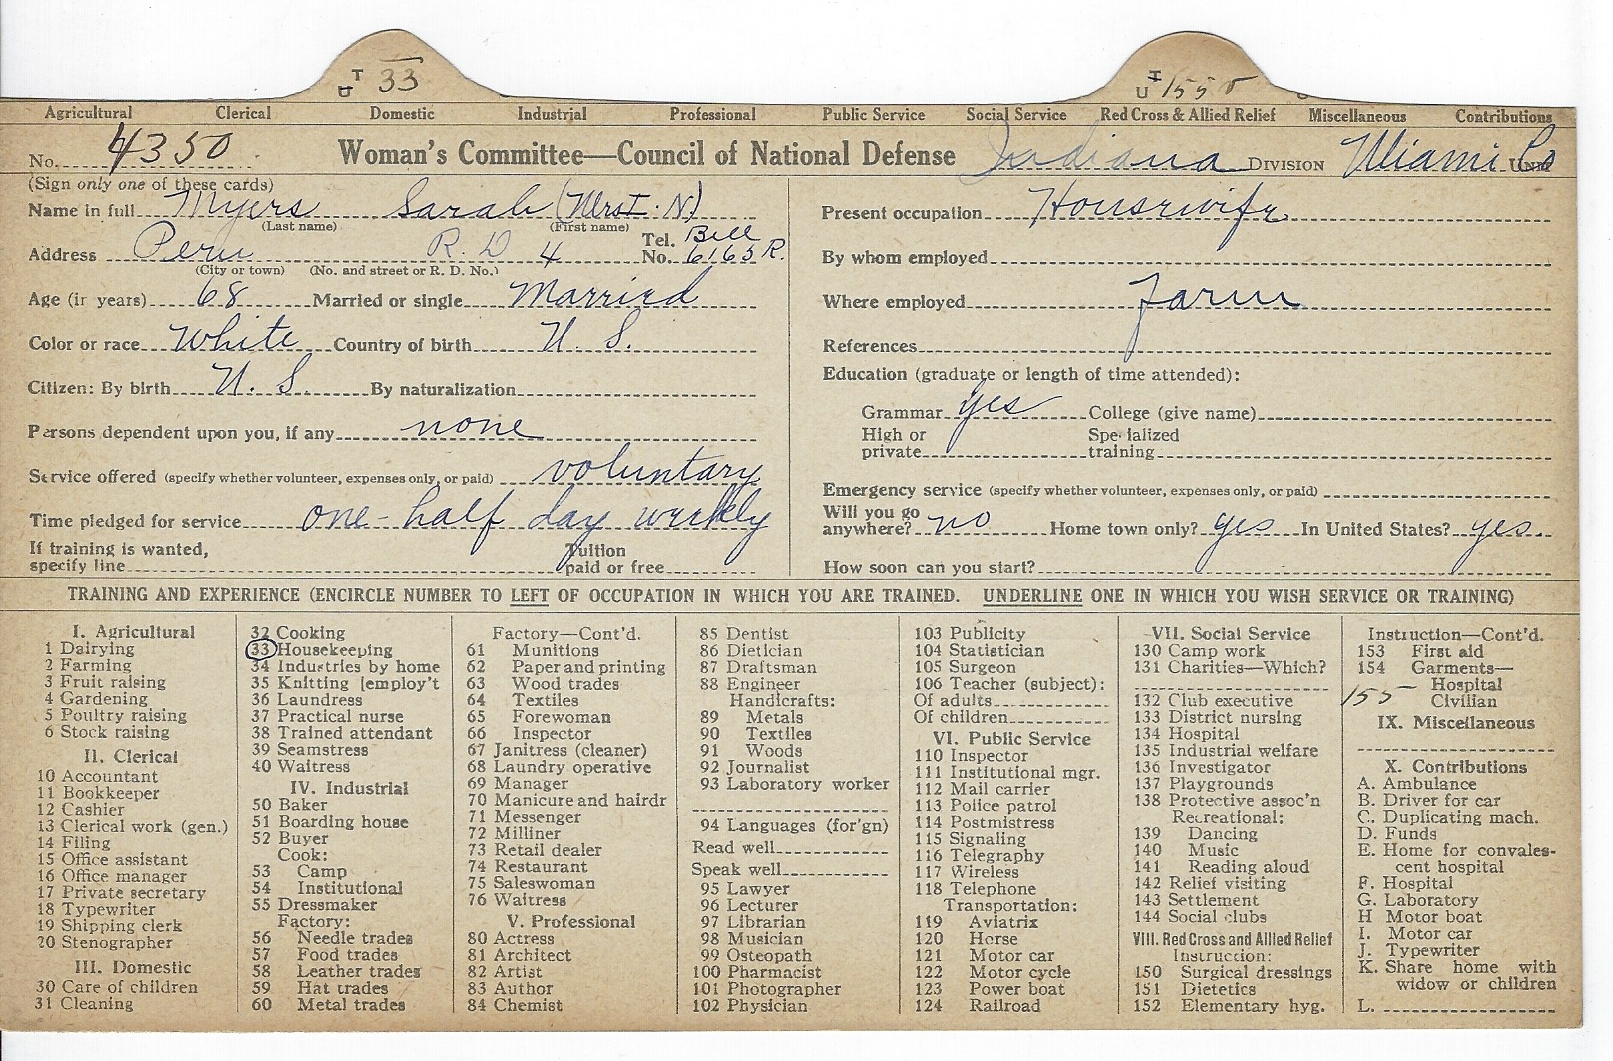 T U 33
T U 155
Agricultural Clerical Domestic Industrial Professional Public Service Social Service Red Cross & Allied Relief Miscellaneous Contributions
No. 4350 Woman's Committee—Council of National Defense Indiana DIVISION Miami Co UNIT
(Sign only one of these cards)
Name in full Myers Sarah
(Last name) (First name)
Address Peru R. D 4 Tel. No. Bell 6163 R.
(City or town) (No. and street or R. D. No.)
Age (in years) 68 Married or single Married
Color or race White Country of birth U. S.
Citizen: By birth U. S. By naturalization
Persons dependent upon you, if any none
Service offered (specify whether volunteer, expenses only, or paid) voluntary
Time pledged for service one-half day weekly
If training is wanted, specify line Tuition paid or free
Present occupation Housewife
By whom employed
Where employed Farm
References
Education (graduate or length of time attended):
Grammar yes College (give name)
High or private Specialized training
Emergency service (specify whether volunteer, expenses only, or paid)
Will you go anywhere? no Home town only? yes In United States? yes
How soon can you start?
TRAINING AND EXPERIENCE (ENCIRCLE NUMBER TO LEFT OF OCCUPATION IN WHICH YOU ARE TRAINED. UNDERLINE ONE IN WHICH YOU WISH SERVICE OR TRAINING)
I. Agricultural
1 Dairying
2 Farming
3 Fruit raising
4 Gardening
5 Poultry raising
6 Stock raising
II. Clerical
10 Accountant
11 Bookkeeper
12 Cashier
13 Clerical work (gen.)
14 Filing
15 Office assistant
16 Office manager
17 Private secretary
18 Typewriter
19 Shipping clerk
20 Stenographer
III. Domestic
30 Care of children
31 Cleaning
32 Cooking
33 Housekeeping
34 Industries by home
35 Knitting [employ't
36 Laundress
37 Practical nurse
38 Trained attendant
39 Seamstress
40 Waitress
IV. Industrial
50 Baker
51 Boarding house
52 Buyer
Cook:
53 Camp
54 Institutional
55 Dressmaker
Factory:
56 Needle trades
57 Food trades
58 Leather trades
59 Hat trades
60 Metal trades
Factory—Cont'd.
61 Munitions
62 Paper and printing
63 Wood trades
64 Textiles
65 Forewoman
66 Inspector
67 Janitress (cleaner)
68 Laundry operative
69 Manager
70 Manicure and hairdr
71 Messenger
72 Milliner
73 Retail dealer
74 Restaurant
75 Saleswoman
76 Waitress
V. Professional
80 Actress
81 Architect
82 Artist
83 Author
84 Chemist
85 Dentist
86 Dietician
87 Draftsman
88 Engineer
Handicrafts:
89 Metals
90 Textiles
91 Woods
92 Journalist
93 Laboratory worker
94 Languages (for'gn)
Read well
Speak well
95 Lawyer
96 Lecturer
97 Librarian
98 Musician
99 Osteopath
100 Pharmacist
101 Photographer
102 Physician
103 Publicity
104 Statistician
105 Surgeon
106 Teacher (subject):
Of adults
Of children
VI. Public Service
110 Inspector
111 Institutional mgr.
112 Mail carrier
113 Police patrol
114 Postmistress
115 Signaling
116 Telegraphy
117 Wireless
118 Telephone
Transportation:
119 Aviatrix
120 Horse
121 Motor car
122 Motor cycle
123 Power boat
124 Railroad
VII. Social Service
130 Camp work
131 Charities—Which?
132 Club executive
133 District nursing
134 Hospital
135 Industrial welfare
136 Investigator
137 Playgrounds
138 Protective assoc'n
Recreational:
139 Dancing
140 Music
141 Reading aloud
142 Relief visiting
143 Settlement
144 Social clubs
VIII. Red Cross and Allied Relief
Instruction:
150 Surgical dressings
151 Dietetics
152 Elementary hyg.
Instruction—Cont'd.
153 First aid
154 Garments—
Hospital
155 Civilian
IX. Miscellaneous
X. Contributions
A. Ambulance
B. Driver for car
C. Duplicating mach.
D. Funds
E. Home for convales-
cent hospital
F. Hospital
G. Laboratory
H Motor boat
I. Motor car
J. Typewriter
K. Share home with
widow or children
L.